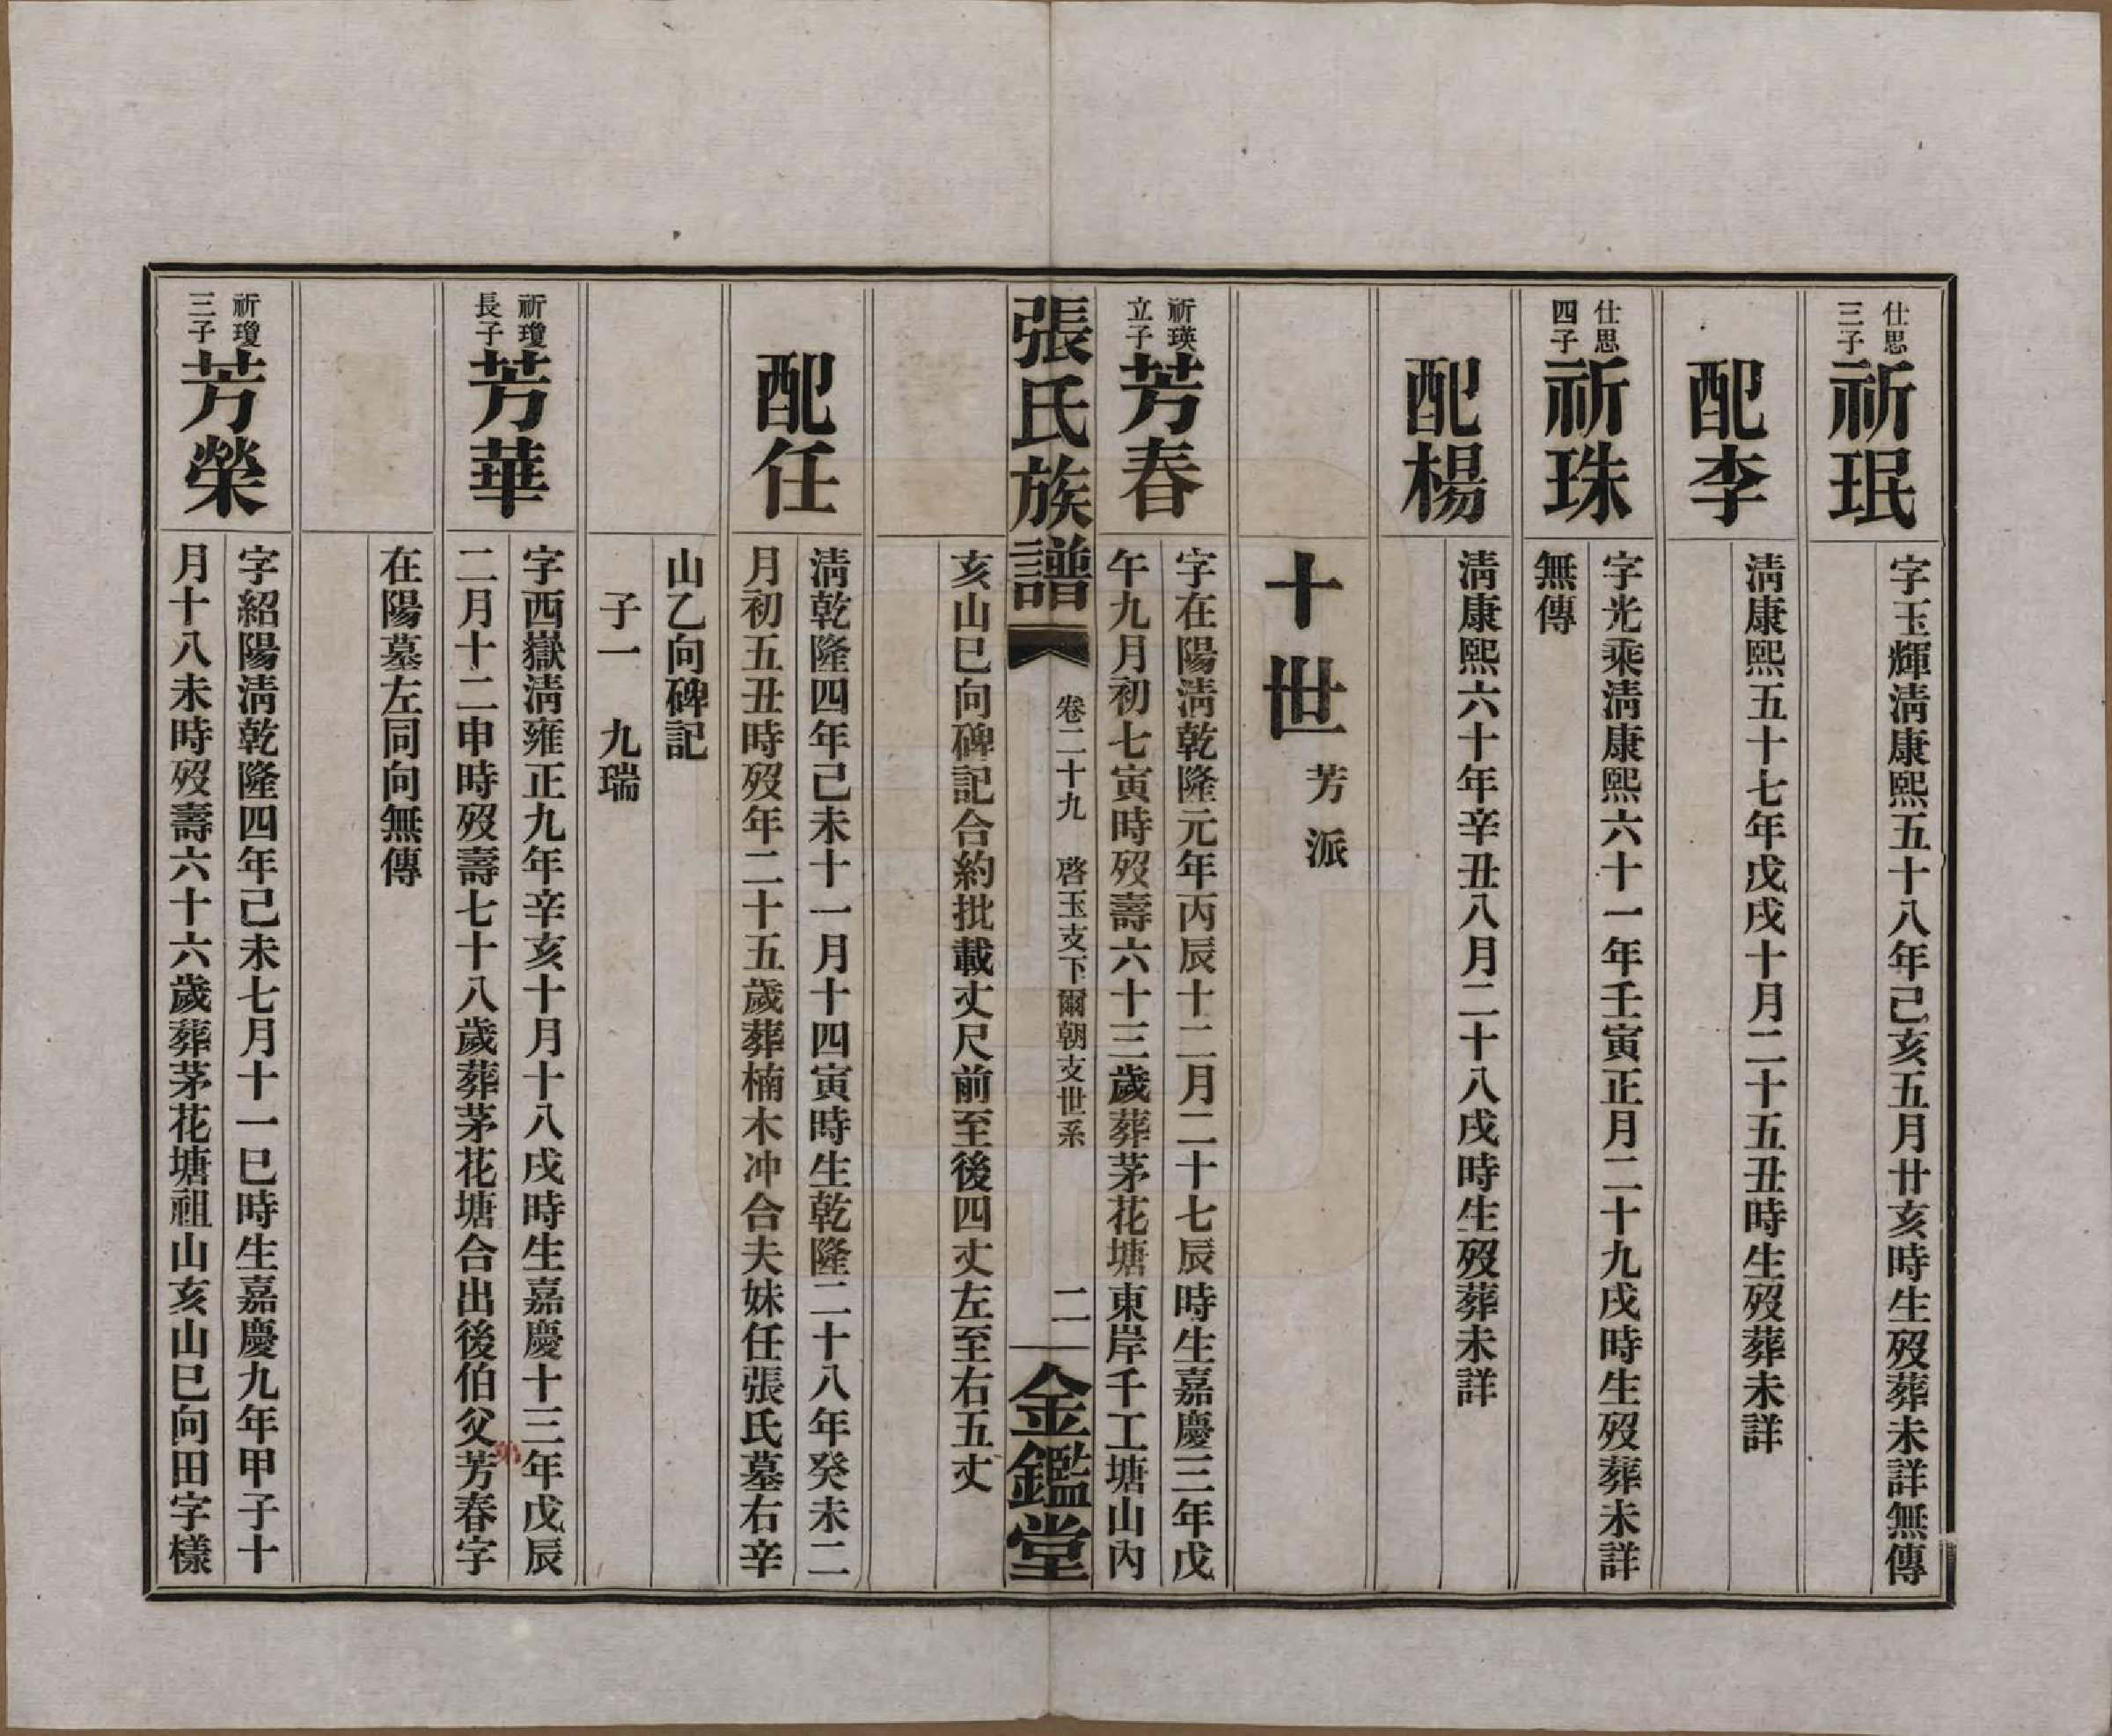 仕思三子
祈珉
字玉輝淸康熙五十八年己亥五月廿亥時生歿葬未詳無傳
配李
淸康熙五十七年戊戌十月二十五丑時生歿葬未詳
仕思四子
祈珠
字光乘淸康熙六十一年壬寅正月二十九戌時生歿葬未詳
無傳
配楊
淸康熙六十年辛丑八月二十八戌時生歿葬未詳
十世 芳派
祈瑛立子
芳春
字在陽淸乾隆元年丙辰十二月二十七辰時生嘉慶三年戊
午九月初七寅時歿壽六十三歲葬茅花塘東岸千工塘山內
張氏族譜 卷二十九 啓玉支下爾朝支世系 二 金鑑堂
亥山巳向碑記合約批載丈尺前至後四丈左至右五丈
配任
淸乾隆四年己未十一月十四寅時生乾隆二十八年癸未二
月初五丑時歿年二十五歲葬楠木冲合夫妹任張氏墓右辛
山乙向碑記
子一 九瑞
祈瓊長子
芳華
字西嶽淸雍正九年辛亥十月十八戌時生嘉慶十三年戊辰
二月十二申時歿壽七十八歲葬茅花塘合出後伯父芳春字
弟
在陽墓左同向無傳
祈瓊三子
芳榮
字紹陽淸乾隆四年己未七月十一巳時生嘉慶九年甲子十
月十八未時歿壽六十六歲葬茅花塘祖山亥山巳向田字樣